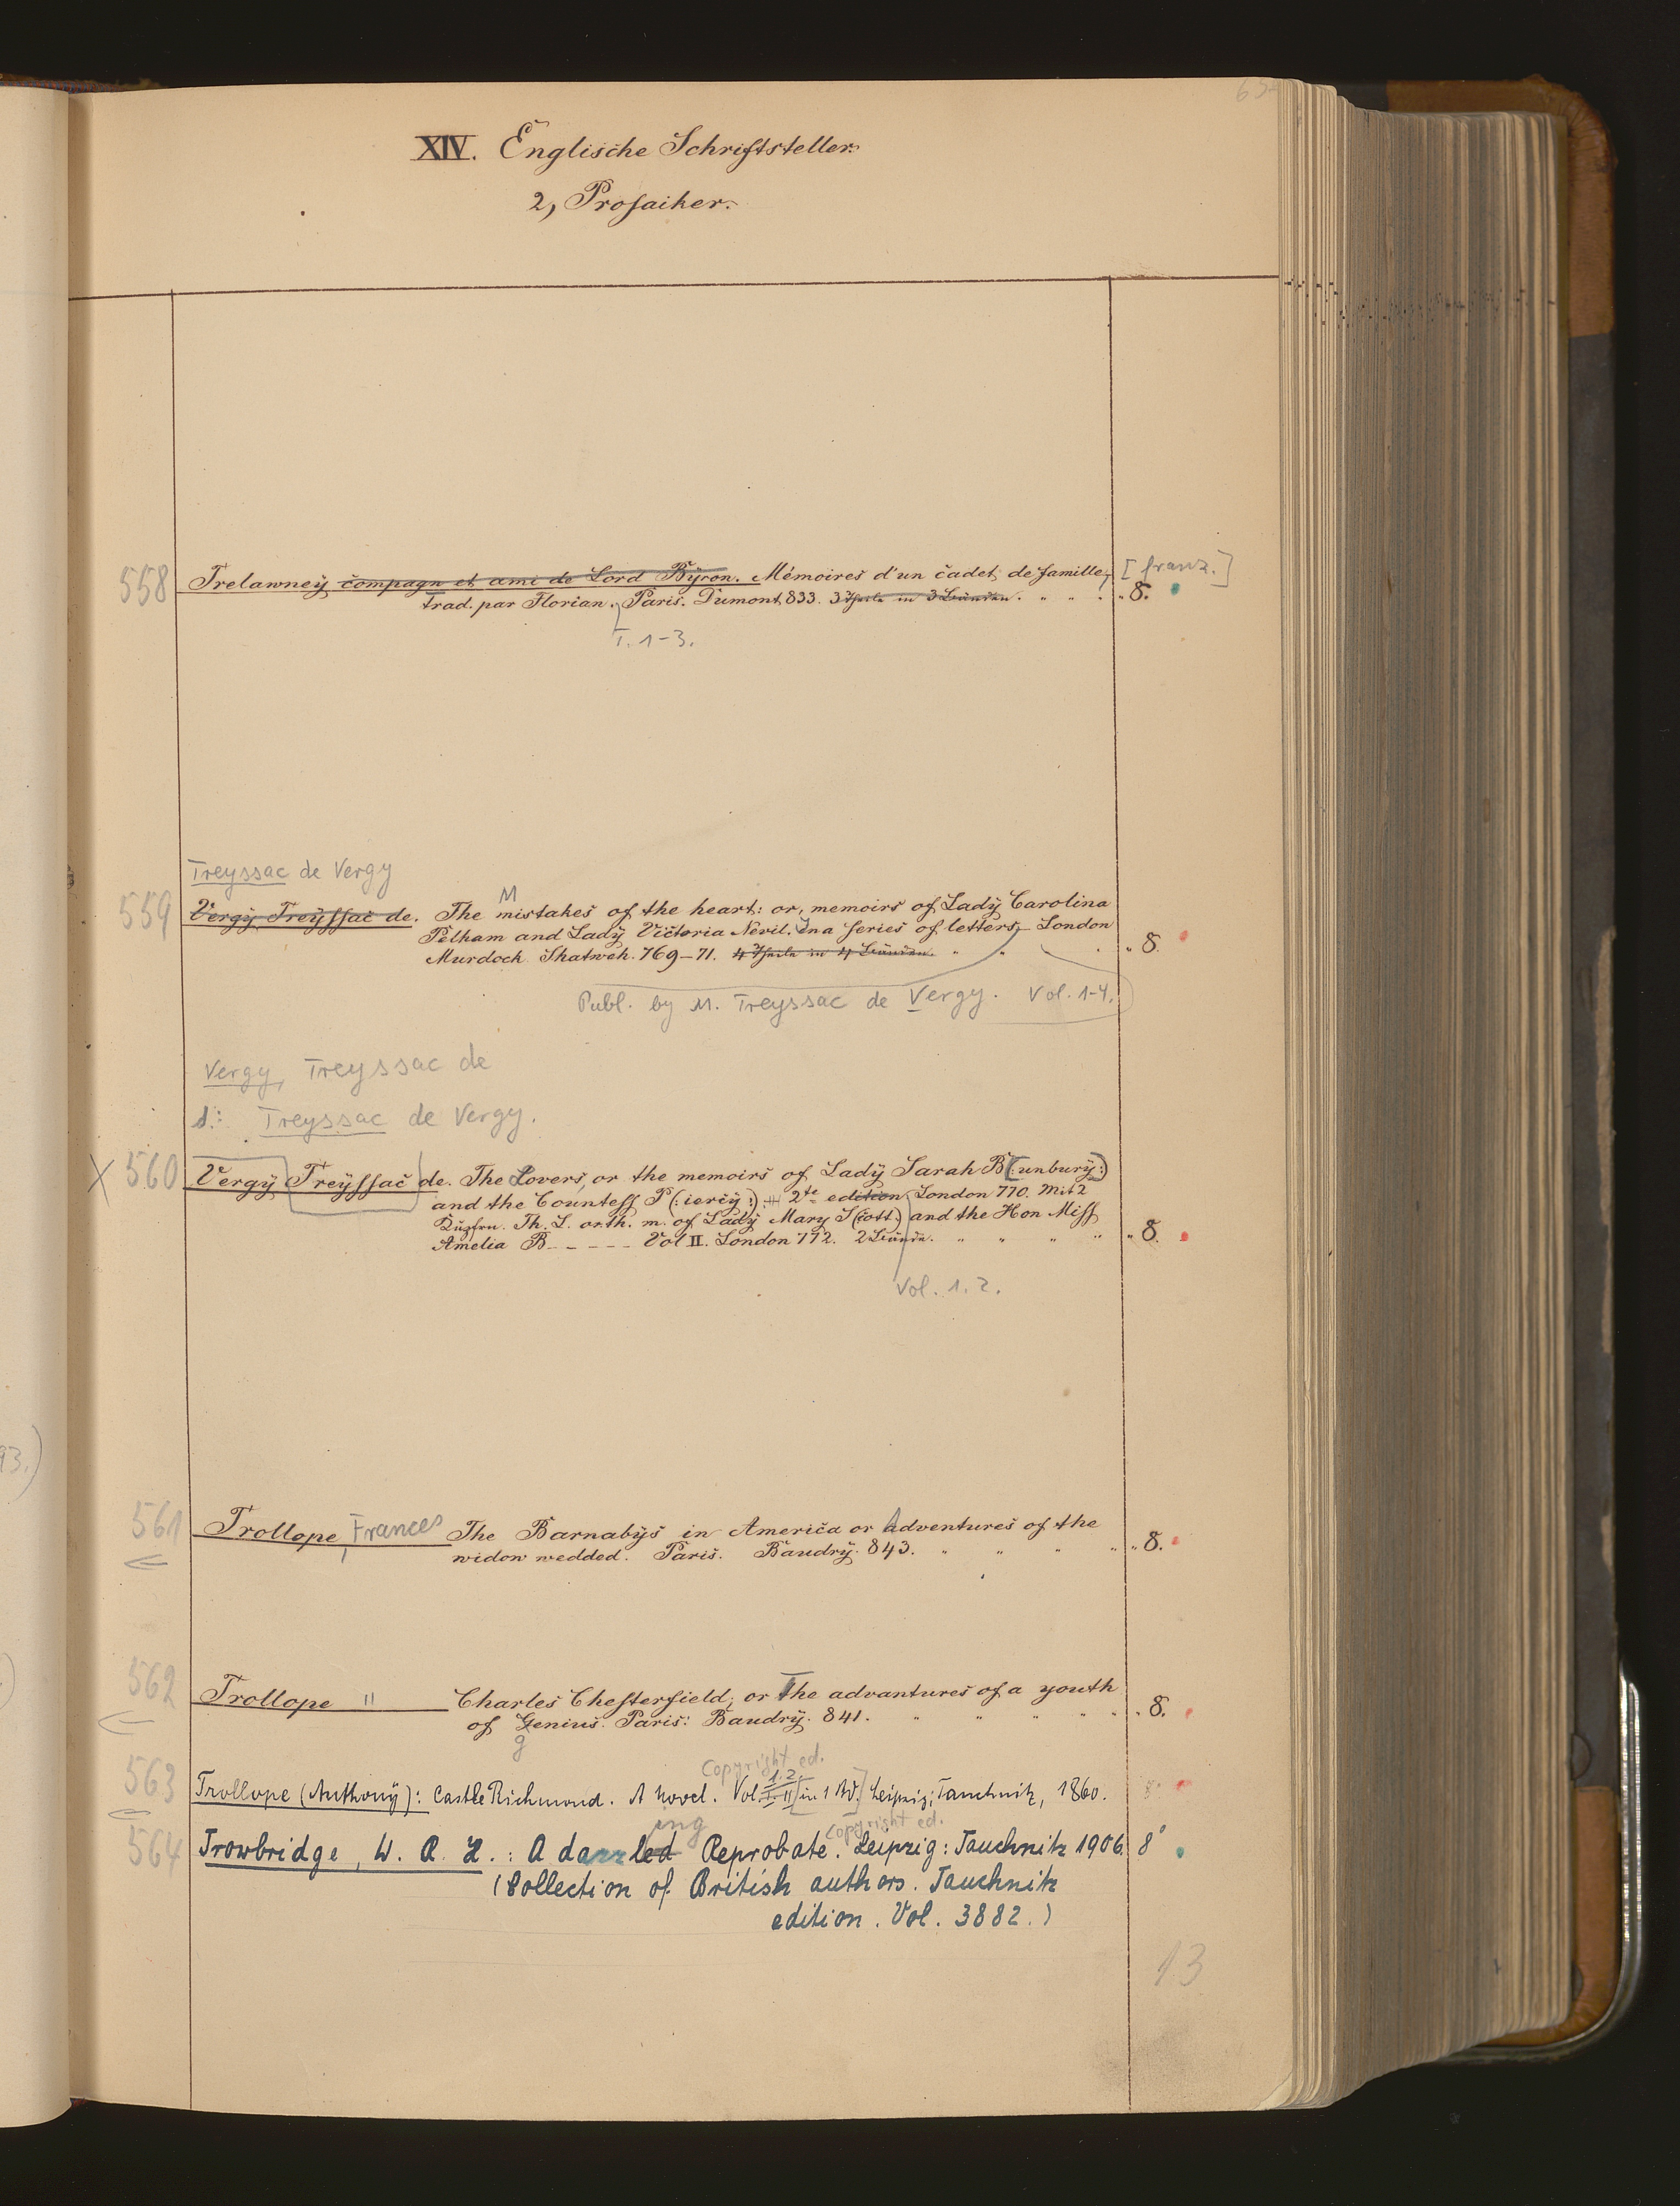 XIV. Englische Schriftsteller.
2, Prosaiker.
558 Trelawney compagn et ami de Lord Byron. Mémoires d'un cadet de famille, [franz.]
Trad. par Florian. Paris. Dumont 833. 3 Theile in 3 Bänden. " " " " 8.
T. 1-3.
Treyssac de Vergy
M
559 Vergy Treyssac de. The mistakes of the heart: or, memoirs of Lady Carolina
Pelham and Lady Victoria Nevil. In a series of letters, London
Murdoch Shatweh. 769-71. 4 Theile in 4 Bänden. " " " " 8.
Publ. by M. Treyssac de Vergy. Vol. 1-4.
Vergy, Treyssac de
s.: Treyssac de Vergy.
X 560 Vergy Treyssac de. The Lovers, or the memoirs of Lady Sarah B(:unbury:)
and the Countess P(:iercy:). 2te edition London 770. Mit 2
Kupfrn. Th. L. or th. m. of Lady Mary S(cott) and the Hon Miss
Amelia B----- Vol II. London 772. 2 Bände. " " " " " 8.
Vol. 1.2.
561 Trollope, Frances The Barnabys in America or Adventures of the
widow wedded. Paris. Baudry. 843. " " " " " 8.
562 Trollope " Charles Chesterfield; or The advantures of a youth
of Genius. Paris: Baudry. 841. " " " " " " 8.
g
Copyright ed.
1.2.
563 Trollope (Anthony): Castle Richmond. A novel. Vol. I. II [in 1 Bd.] Leipzig: Tauchnitz, 1860. 8°
ing Copyright ed.
564 Trowbridge, W. R. H.: A dazzled Reprobate. Leipzig: Tauchnitz 1906. 8°
(Collection of British authors. Tauchnitz
edition. Vol. 3882.)
13
93.)